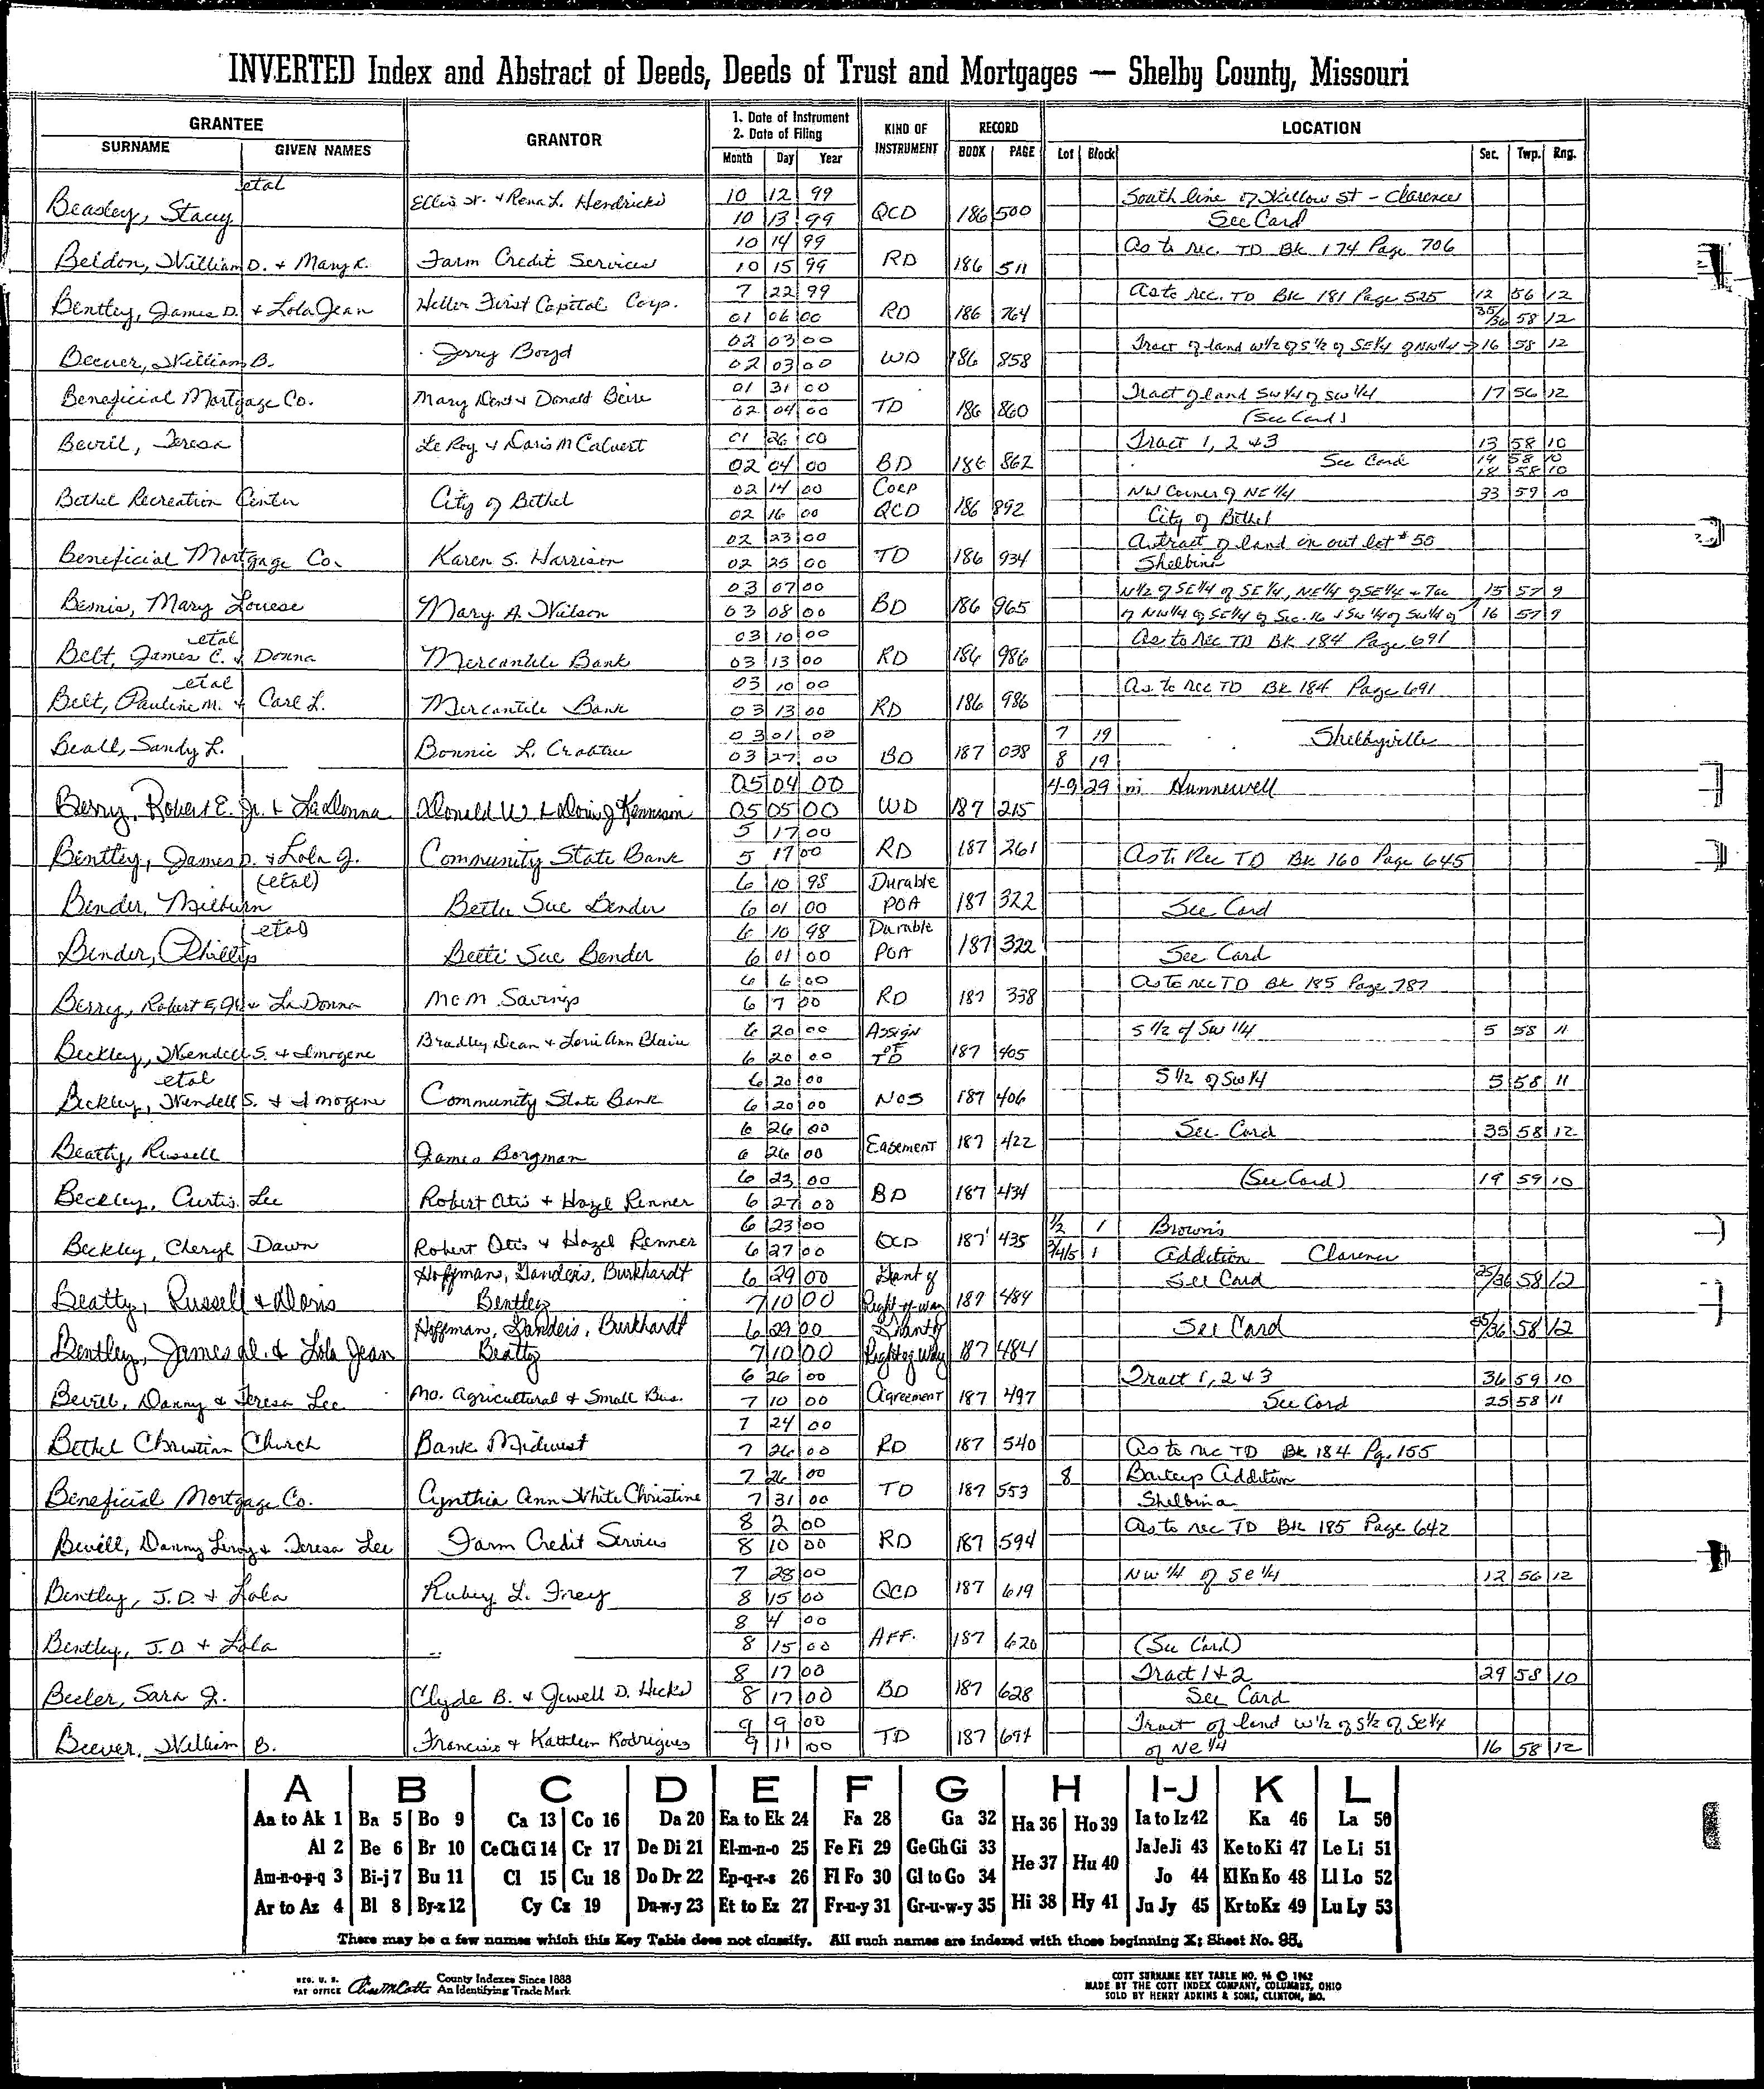 INVERTED Index and Abstract of Deeds, Deeds of Trust and Mortgages — Shelby County, Missouri
GRANTEE GRANTOR 1. Date of Instrument 2. Date of Filing KIND OF INSTRUMENT RECORD LOCATION
SURNAME GIVEN NAMES Month Day Year BOOK PAGE Lot Block Sec. Twp. Rng.
etal 10 12 99 South line of Willow St - Clarence
Beasley, Stacy Ellis W. & Rena L. Hendricks 10 13 99 QCD 186 500 See Card
10 14 99 As to rec. TD Bk 174 Page 706
Beldon, William D. & Mary K. Farm Credit Services 10 15 99 RD 186 511
7 22 99 As to rec. TD Bk 181 Page 525 12 56 12
Bentley, James D. & Lola Jean Heller First Capital Corp. 01 06 00 RD 186 764 35/36 58 12
02 03 00 Tract of land W1/2 of S1/2 of SE1/4 of NW1/4 16 58 12
Beever, William B. Jerry Boyd 02 03 00 WD 186 858
01 31 00 Tract of land SW1/4 of SW1/4 17 56 12
Beneficial Mortgage Co. Mary Dent & Donald 02 04 00 TD 186 860 (See Card)
01 26 00 Tract 1, 2 & 3 13 58 10
Bevill, Teresa LeRoy & Doris M Calvert 02 04 00 BD 186 862 See Card 14 58 10
18 58 10
02 14 00 Corp NW Corner of NE 1/4 33 59 10
Bethel Recreation Center City of Bethel 02 16 00 QCD 186 892 City of Bethel
02 23 00 A tract of land in out lot #50
Beneficial Mortgage Co. Karen S. Harrison 02 25 00 TD 186 934 Shelbina
03 07 00 N1/2 of SE1/4 of SE1/4, NE1/4 of SE1/4 & 15 57 9
Bemis, Mary Louese Mary A. Wilson 03 08 00 BD 186 965 of NW1/4 of SE1/4 of Sec. 16 & SW1/4 of SW1/4 of 16 57 9
etal 03 10 00 As to rec TD Bk 184 Page 691
Belt, James C. & Donna Mercantile Bank 03 13 00 RD 186 986
etal 03 10 00 As to rec TD Bk 184 Page 691
Belt, Pauline M. & Carl L. Mercantile Bank 03 13 00 RD 186 986
03 01 00 7 19 Shelbyville
Beall, Sandy L. Bonnie L. Crabtree 03 27 00 BD 187 038 8 19
05 04 00 4-9 29 in Hunnewell
Berry, Robert E. Jr. & LaDonna Donald W & Doris J Kennison 05 05 00 WD 187 215
5 17 00
Bentley, James D. & Lola J. Community State Bank 5 17 00 RD 187 261 As to Rec TD Bk 160 Page 645
(etal) 6 10 98 Durable
Bender, Milburn Bette Sue Bender 6 01 00 POA 187 322 See Card
etal 6 10 98 Durable
Bender, Phillip Bette Sue Bender 6 01 00 POA 187 322 See Card
6 6 00 As to rec TD Bk 185 Page 787
Berry, Robert E, Jr & LaDonna MCM Savings 6 7 00 RD 187 338
6 20 00 Assign S 1/2 of SW 1/4 5 58 11
Beckley, Wendell S. & Imogene Bradley Dean & Lori Ann Blaise 6 20 00 OF TD 187 405
etal 6 20 00 S 1/2 of SW 1/4 5 58 11
Beckley, Wendell S. & Imogene Community State Bank 6 20 00 NOS 187 406
6 26 00 See Card 35 58 12
Beatty, Russell James Borgman 6 26 00 Easement 187 422
6 23 00 (See Card) 19 59 10
Beckley, Curtis Lee Robert Otis & Hazel Renner 6 27 00 BD 187 434
6 23 00 1/2 1 Brown's
Beckley, Cheryl Dawn Robert Otis & Hazel Renner 6 27 00 QCD 187 435 3/4/5 1 Addition Clarence
Hoffman, Sanders, Burkhardt 6 29 00 Grant of See Card 25/36 58 12
Beatty, Russell & Doris Bentley 7 10 00 Right-of-way 187 484
Hoffman, Sanders, Burkhardt 6 29 00 Grant of See Card 58 12
Bentley, James D. & Lola Jean Beatty 7 10 00 Right of Way 187 484
6 26 00 Tract 1, 2 & 3 36 59 10
Bevill, Danny & Teresa Lee Mo. Agricultural & Small Bus. 7 10 00 Agreement 187 497 See Card 25 58 11
7 24 00
Bethel Christian Church Bank Midwest 7 26 00 RD 187 540 As to rec TD Bk 184 Pg. 155
7 26 00 8 Addition
Beneficial Mortgage Co. Cynthia Ann White Christine 7 31 00 TD 187 553 Shelbina
8 2 00 As to rec TD Bk 185 Page 642
Bevill, Danny Leroy & Teresa Lee Farm Credit Services 8 10 00 RD 187 594
7 28 00 NW 1/4 of SE 1/4 12 56 12
Bentley, J.D. & Lola Rubey L. Frey 8 15 00 QCD 187 619
8 4 00
Bentley, J.D & Lola 8 15 00 AFF. 187 620 (See Card)
8 17 00 Tract 1 & 2 29 58 10
Beeler, Sara J. Clyde B. & Jewell D. Hicks 8 17 00 BD 187 628 See Card
9 9 00 Tract of land W1/2 of S1/2 of SE1/4
Beever, William B. Francisco & Kathleen Rodrigues 9 11 00 TD 187 697 of NE 1/4 16 58 12
A B C D E F G H I-J K L
Aa to Ak 1 Ba 5 Bo 9 Ca 13 Co 16 Da 20 Ea to Ek 24 Fa 28 Ga 32 Ha 36 Ho 39 Ia to Iz 42 Ka 46 La 50
Al 2 Be 6 Br 10 Ce Ch Ci 14 Cr 17 De Di 21 El-m-n-o 25 Fe Fi 29 Ge Gh Gi 33 He 37 Hu 40 Ja Je Ji 43 Ke to Ki 47 Le Li 51
Am-n-o-p-q 3 Bi-j 7 Bu 11 Cl 15 Cu 18 Do Dr 22 Ep-q-r-s 26 Fl Fo 30 Gl to Go 34 Jo 44 Kl Kn Ko 48 Ll Lo 52
Ar to Az 4 Bl 8 By-z 12 Cy Cz 19 Du-w-y 23 Et to Ez 27 Fr-u-y 31 Gr-u-w-y 35 Hi 38 Hy 41 Ju Jy 45 Kr to Kz 49 Lu Ly 53
There may be a few names which this Key Table does not classify. All such names are indexed with those beginning X; Sheet No. 95.
REG. U. S. PAT OFFICE County Indexes Since 1888 An Identifying Trade Mark
COTT SURNAME KEY TABLE NO. 96 © 1962
MADE BY THE COTT INDEX COMPANY, COLUMBUS, OHIO
SOLD BY HENRY ADKINS & SONS, CLINTON, MO.